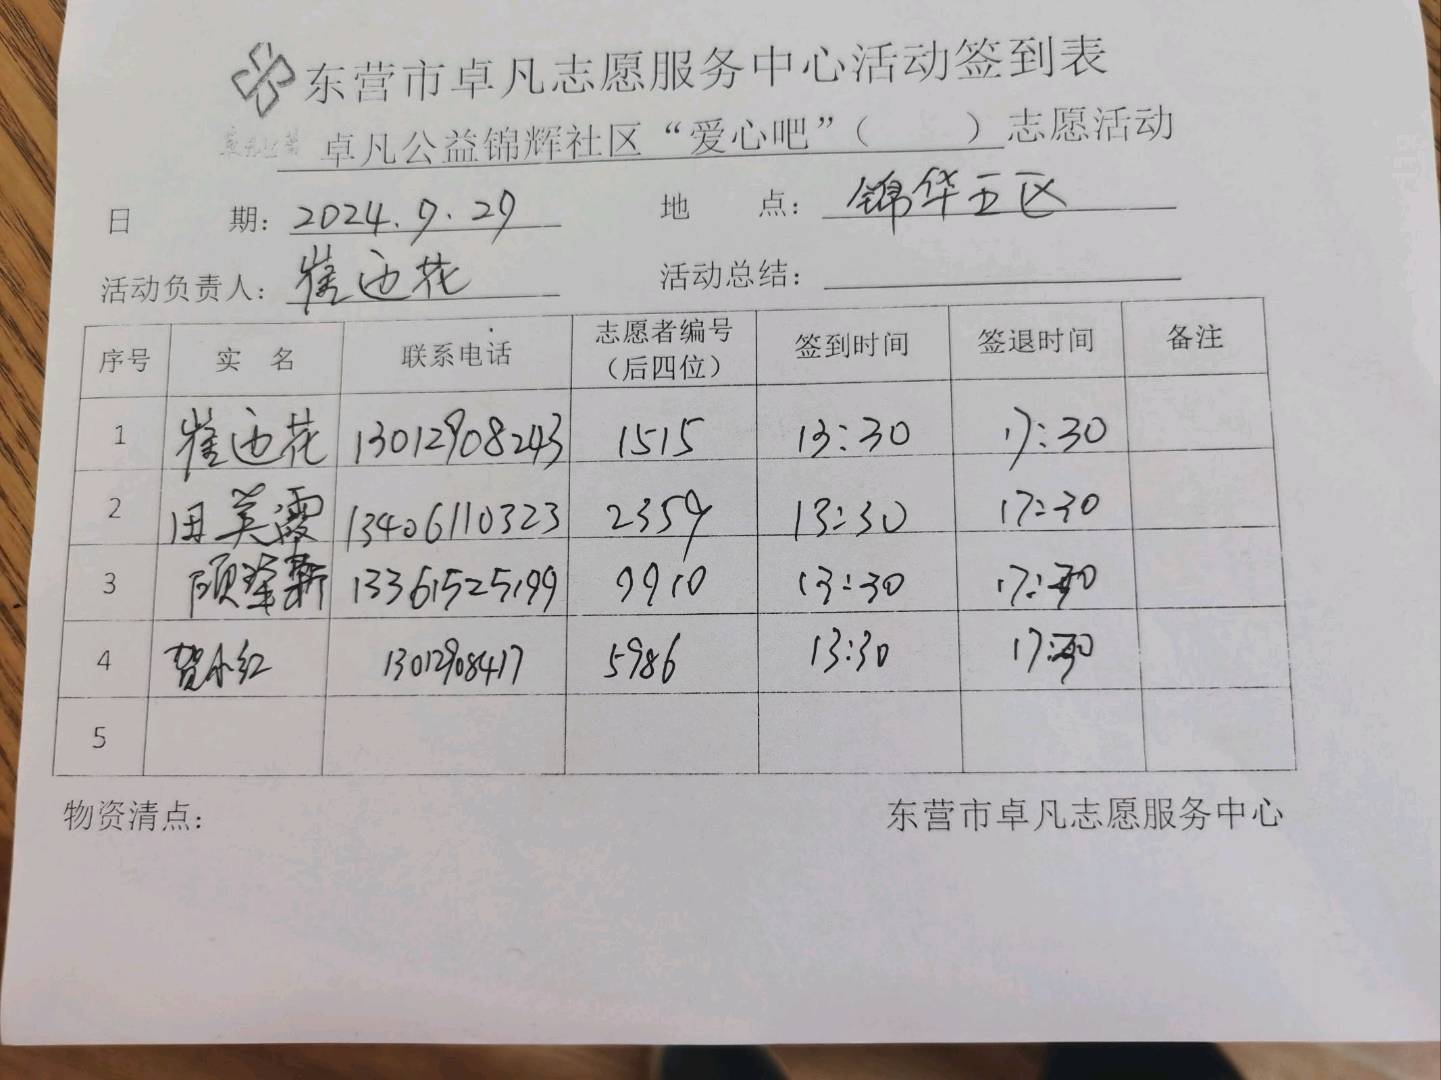 东营市卓凡志愿服务中心活动签到表
卓凡公益锦辉社区“爱心吧”（ ）志愿活动
日 期：2024.9.29 地 点：锦华五区
活动负责人：崔迎花 活动总结：
序号 实 名 联系电话 志愿者编号（后四位） 签到时间 签退时间 备注
1 崔迎花 13012908243 1515 13:30 17:30
2 田美霞 13406110323 2359 13:30 17:30
3 顾 13361525199 9910 13:30 17:30
4 贺小红 13012908417 5986 13:30 17:30
5
物资清点： 东营市卓凡志愿服务中心